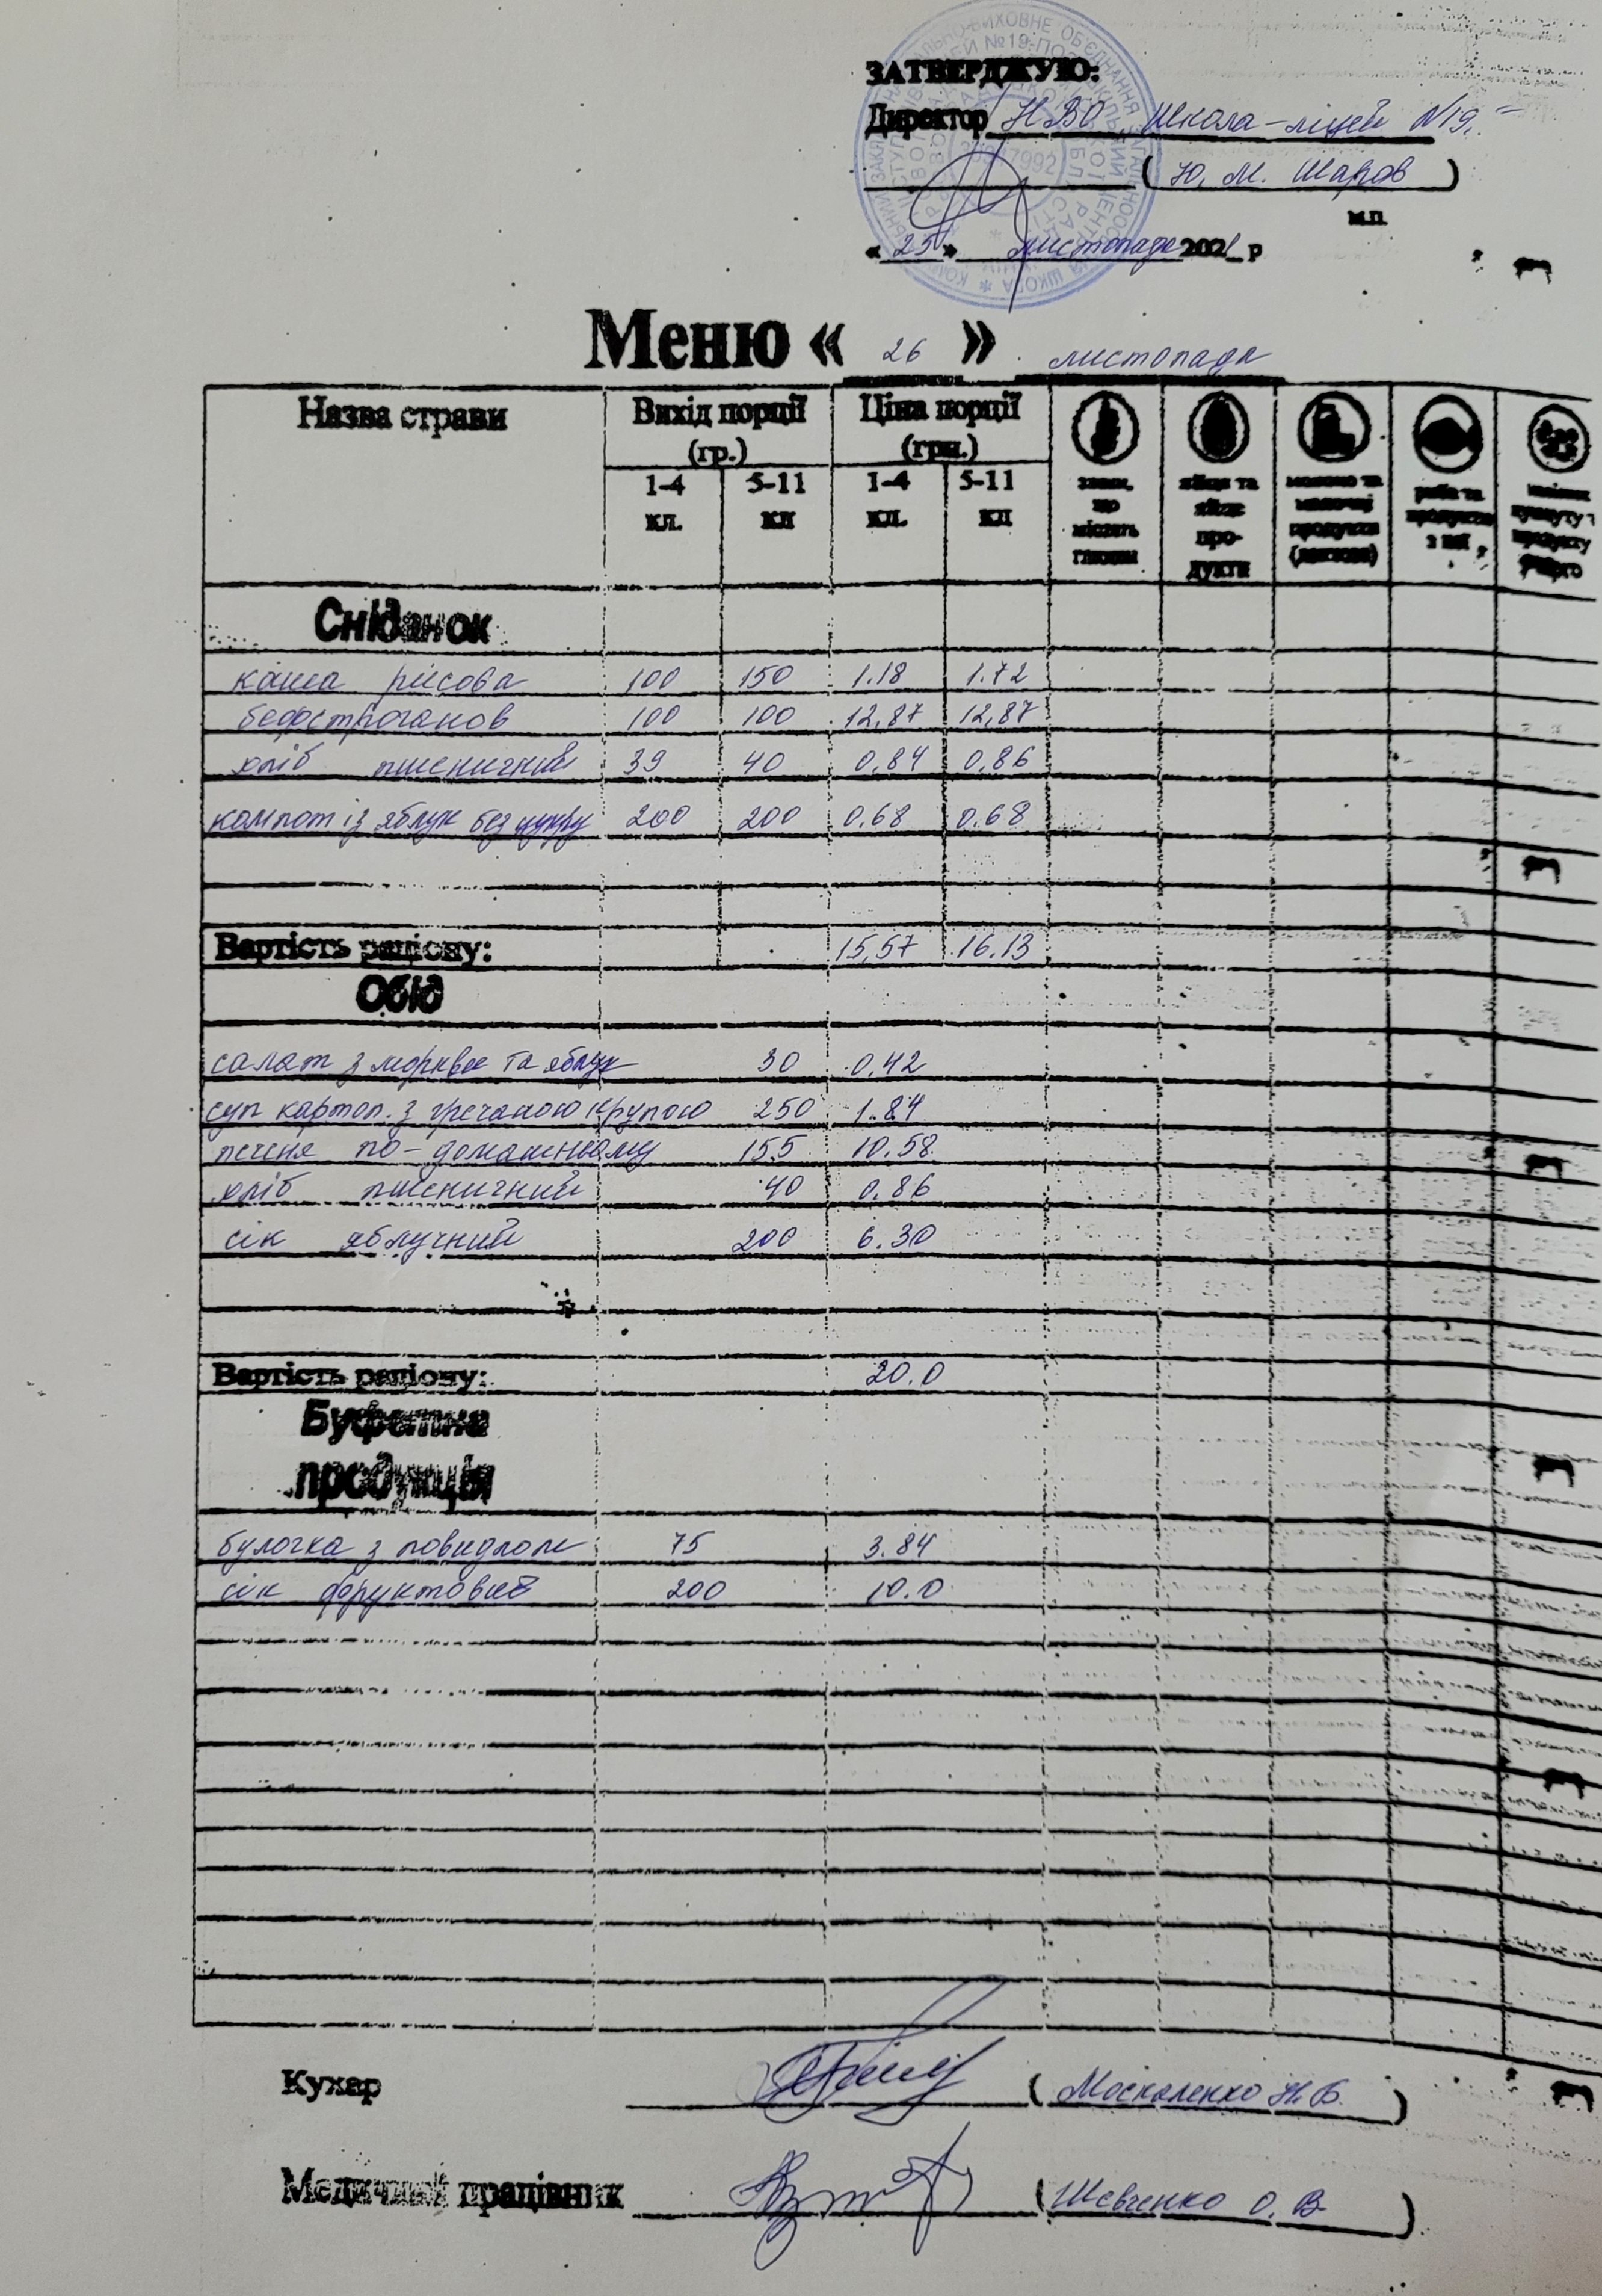 ЗАТВЕРДЖУЮ:
Директор НВО Школа-ліцей №19
( Ю. М. Шаров )
м.п.
« 25 » листопада 2021 р
Меню « 26 » листопада
Назва страви Вихід порції (гр.) Ціна порції (грн.)
1-4 кл. 5-11 кл 1-4 кл. 5-11 кл
злаки, що містять глютен
яйця та яйце про-дукти
молоко та молочні продукти (лактоза)
риба та продукти з неї
Сніданок
каша рисова 100 150 1.18 1.72
бефстроганов 100 100 12,87 12,87
хліб пшеничний 39 40 0,84 0,86
компот із яблук без цукру 200 200 0.68 0.68
Вартість раціону: 15,57 16.13
Обід
салат з моркви та яблук 30 0,42
суп картоп. з гречаною крупою 250 1.84
печеня по-домашньому 155 10.58
хліб пшеничний 40 0.86
сік яблучний 200 6.30
Вартість раціону: 20.0
Буфетна
продукція
булочка з повидлом 75 3.84
сік фруктовий 200 10.0
Кухар ( Москаленко Н.В. )
Медичний працівник ( Шевченко О. В. )